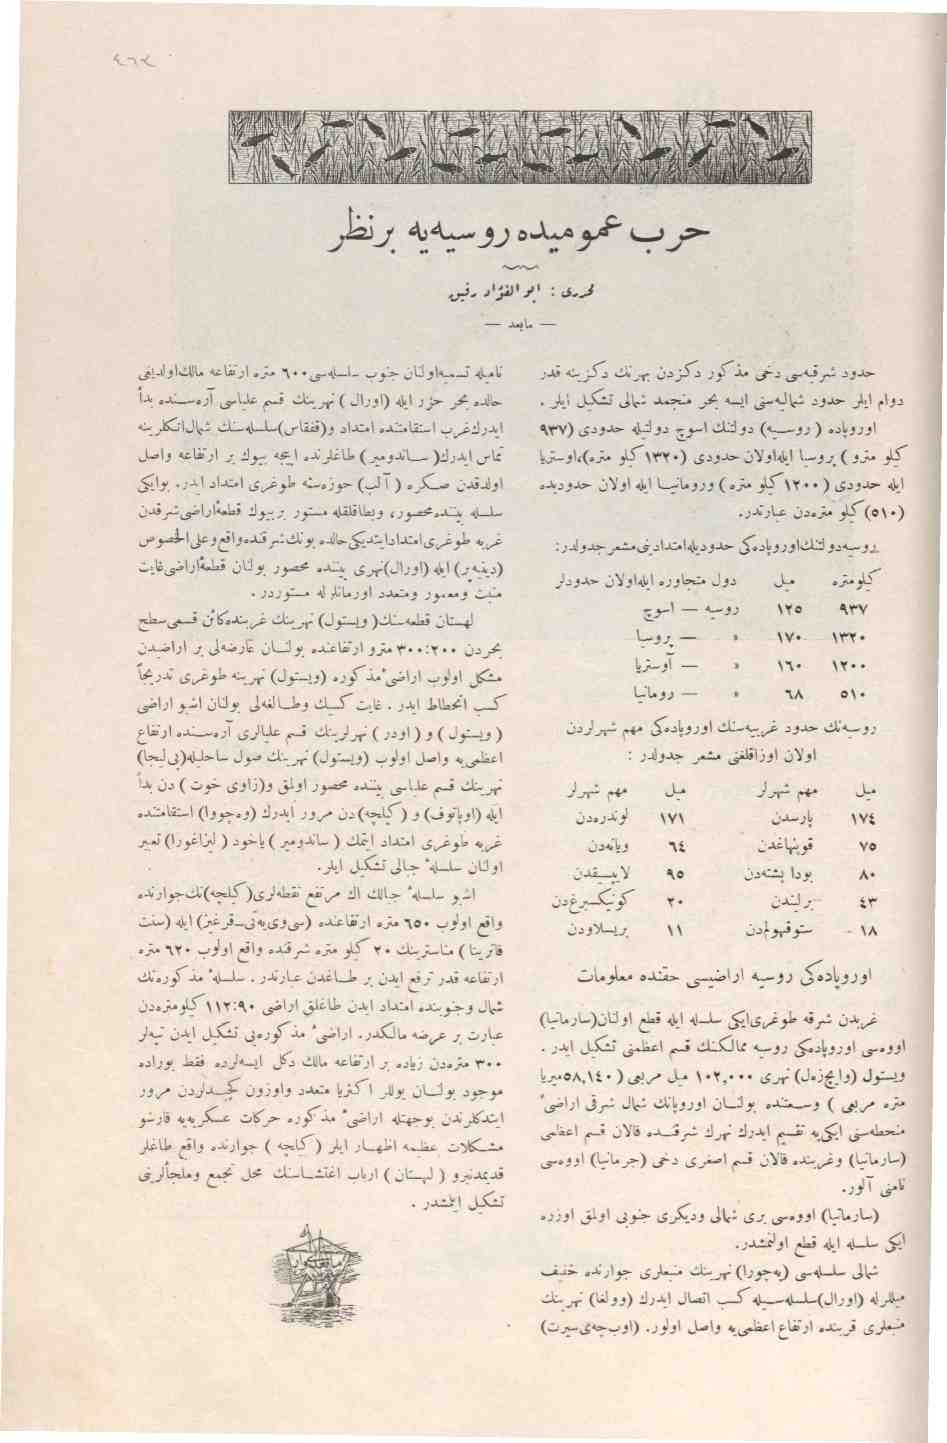 ٤٦٢
حرب عموميده روسيه‌يه برنظر
محررى : ابوالفؤاد رفيق
— مابعد —
حدود شرقيه‌سى دخى مذكور دكزدن بهرنك دكزينه قدر
دوام ايلر حدود شماليه‌سنى ايسه بحر منجمد شمالى تشكيل ايلر .
اوروپاده ( روسيه ) دولتنك اسوج دولتيله حدودى (٩٣٧
كيلو مترو ) پروسيا ايله‌اولان حدودى (١٣٢٠ كيلو متره)،اوستريا
ايله حدودى ( ١٢٠٠ كيلو متره ) ورومانيا ايله اولان حدوديده
(٥١٠) كيلو متره‌دن عبارتدر.
روسيه‌دولتنك‌اوروپاده‌كى حدوديله‌امتدادينى‌مشعر جدولدر:
كيلومتره ميل دول متجاوره ايله‌اولان حدودلر
٩٣٧ ١٢٥ روسيه — اسوج
١٣٢٠ ١٧٠ » — پروسيا
١٢٠٠ ١٦٠ » — آوستريا
٥١٠ ٦٨ » — رومانيا
روسيه‌نك حدود غربيه‌سنك اوروپاده‌كى مهم شهرلردن
اولان اوزاقلغنى مشعر جدولدر :
ميل مهم شهرلر ميل مهم شهرلر
١٧٤ پارسدن ١٧١ لوندره‌دن
٧٥ قوپنهاغدن ٦٤ ويانه‌دن
٨٠ بودا پشته‌دن ٩٥ لايپسيقدن
٤٣ برلندن ٢٠ كونيكسبرغ‌دن
١٨ ستوقهولم‌دن ١١ بريسلاودن
اوروپاده‌كى روسيه اراضيسى حقنده معلومات
غربدن شرقه طوغرى‌ايكى سلسله ايله قطع اولنان(سارماتيا)
اووه‌سى اوروپاده‌كى روسيه ممالكنك قسم اعظمنى تشكيل ايدر .
ويستول (وايچزه‌ل) نهرى ١٠٢,٠٠٠ ميل مربعى (٥٨,١٤٠ميريا
متره مربعى ) وسعتنده بولنان اوروپانك شمال شرقى اراضىٔ
منحطه‌سنى ايكى‌يه تقسيم ايدرك نهرك شرقنده قالان قسم اعظمى
(سارماتيا) وغربنده قالان قسم اصغرى دخى (جرمانيا) اووه‌سى
نامنى آلور.
(سارماتيا) اووه‌سى برى شمالى وديكرى جنوبى اولمق اوزره
ايكى سلسله ايله قطع اولنمشدر.
شمالى سلسله‌سى (په‌چورا) نهرينك منبعلرى جوارنده خفيف
ميللرله (اورال)سلسله‌سيله كسب اتصال ايدرك (وولغا) نهرينك
منبعلرى قربنده ارتفاع اعظمى‌يه واصل اولور. (اوب‌چه‌ى‌سيرت)
ناميله تسميه‌اولنان جنوب سلسله‌سى٦٠٠ متره ارتفاعه مالك‌اولديغى
حالده بحر خزر ايله (اورال ) نهرينك قسم علياسى آره‌سنده بدأ
ايدرك‌غرب استقامتنده امتداد و(قفقاس)سلسله‌سنك شمال‌اتكلرينه
تماس ايدرك( ساندومير) طاغلرنده ايجه بيوك بر ارتفاعه واصل
اولدقدن صكره ( آلب) حوزه‌سنه طوغرى امتداد ايدر. بوايكى
سلسله بيننده‌محصور، وبطاقلقله مستور بربيوك قطعهٔ‌اراضى‌شرقدن
غربه طوغرى‌امتدادايتديكى‌حالده بونك‌شرقنده‌واقع‌وعلى‌الخصوص
(دينيه‌پر) ايله (اورال)نهرى بيننده محصور بولنان قطعهٔ‌اراضى‌غايت
منبت ومعمور ومتعدد اورمانلرله مستوردر .
لهستان قطعه‌سنك( ويستول) نهرينك غربنده‌كائن قسمى‌سطح
بحردن ٣٠٠:٢٠٠ مترو ارتفاعنده بولنان عارضه‌لى بر اراضيدن
مشكل اولوب اراضىٔ مذكوره (ويستول) نهرينه طوغرى تدريجاً
كسب انحطاط ايدر . غايت كسيك وطالغه‌لى بولنان اشبو اراضى
( ويستول ) و ( اودر ) نهرلرينك قسم عليالرى آره‌سنده ارتفاع
اعظمى‌يه واصل اولوب (ويستول) نهرينك صول ساحليله(پى‌ليجا)
نهرينك قسم علياسى بيننده محصور اولمق و(زاوى خوت ) دن بدأ
ايله (اوپاتوف) و ( كيلچه)دن مرور ايدرك (وه‌چووا) استقامتنده
غربه طوغرى امتداد ايتمك ( ساندومير ) ياخود ( ليزاغورا) تعبير
اولنان سلسلهٔ جبالى تشكيل ايلر.
اشبو سلسلهٔ جبالك اك مرتفع نقطه‌لرى( كيلچه)نك‌جوارنده
واقع اولوب ٦٥٠ متره ارتفاعنده (سى‌وى‌يه‌تى‌ـقرغيز) ايله (سنت
قاترينا ) مناسترينك ٢٠ كيلو متره شرقنده واقع اولوب ٦٢٠ متره
ارتفاعه قدر ترفع ايدن بر طاغدن عبارتدر. سلسلهٔ مذكوره‌نك
شمال وجنوبنده امتداد ايدن طاغلق اراضى ١١٢:٩٠ كيلومتره‌دن
عبارت بر عرضه مالكدر. اراضىٔ مذكوره‌يى تشكيل ايدن تپه‌لر
٣٠٠ متره‌دن زياده بر ارتفاعه مالك دكل ايسه‌لرده فقط بوراده
موجود بولنان يوللر اكثريا متعدد واوزون كچيدلردن مرور
ايتدكلرندن بوجهتله اراضىٔ مذكوره حركات عسكريه‌يه قارشو
مشكلات عظيمه اظهار ايلر ( كيلچه ) جوارنده واقع طاغلر
قديمدنبرو ( لهستان ) ارباب اغتشاشنك محل تجمع وملجألرينى
تشكيل ايلمشدر .
مابعدى وار